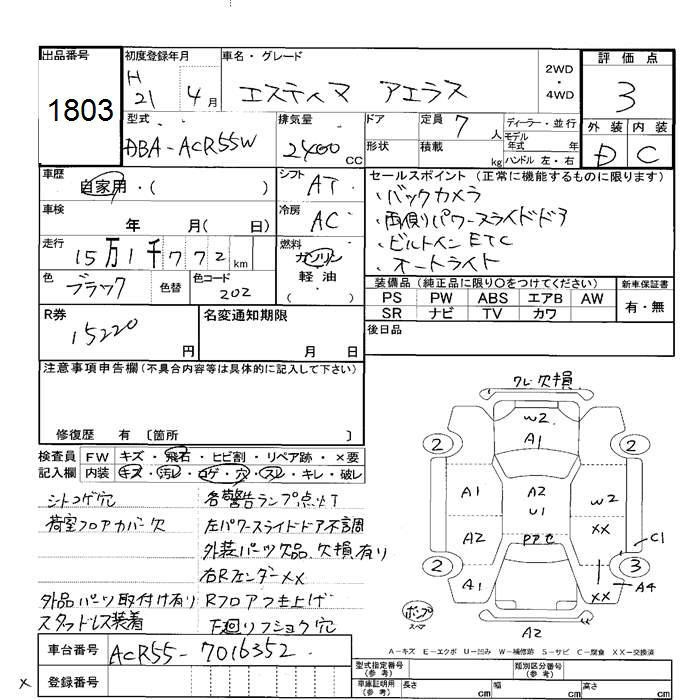 出品番号
1803
初度登録年月
H
21 4月
車名・グレード
エスティマ アエラス
2WD
・
4WD
評価点
3
型式
DBA-ACR55W
排気量
2400 CC
ドア
形状
定員 7 人
積載 kg
ディーラー・並行
モデル年式 年
ハンドル 左・右
外装 内装
D C
車歴
自家用・( )
シフト
AT
セールスポイント(正常に機能するものに限ります)
・バックカメラ
・両側パワースライドドア
・ビルトインETC
・オートライト
車検
年 月( 日)
冷房
AC
走行
15万1千772km
燃料
ガソリン
軽油
( )
色
ブラック
色替
色コード
202
装備品(純正品に限り○をつけてください)
PS PW ABS エアB AW
SR ナビ TV カワ
新車保証書
有・無
R券
15220円
名変通知期限
月 日
後日品
注意事項申告欄(不具合内容等は具体的に記入して下さい)
修復歴 有 〔箇所 〕
検査員
記入欄
FW キズ・飛石・ヒビ割・リペア跡・×要
内装 キズ・汚レ・コゲ・穴・スレ・キレ・破レ
シートコゲ穴
各警告ランプ点灯
荷室フロアカバー欠
左パワースライドドア不調
外装パーツ欠品、欠損有り
右Rフェンダー××
外品パーツ取付け有り
Rフロアつき上げ
スタッドレス装着
下廻り
穴
欠損
W2
A1
2 2
A1 A2 U1 W2
A2 XX
C1
2 3
A1 XX A4
A2
A-キズ E-エクボ U-凹み W-補修跡 S-サビ C-腐食 XX-交換済
車台番号
ACR55-7016352
× 登録番号
型式指定番号
(参考)
類別区分番号
(参考)
車庫証明用
(参考)
長さ cm 幅 cm 高さ cm